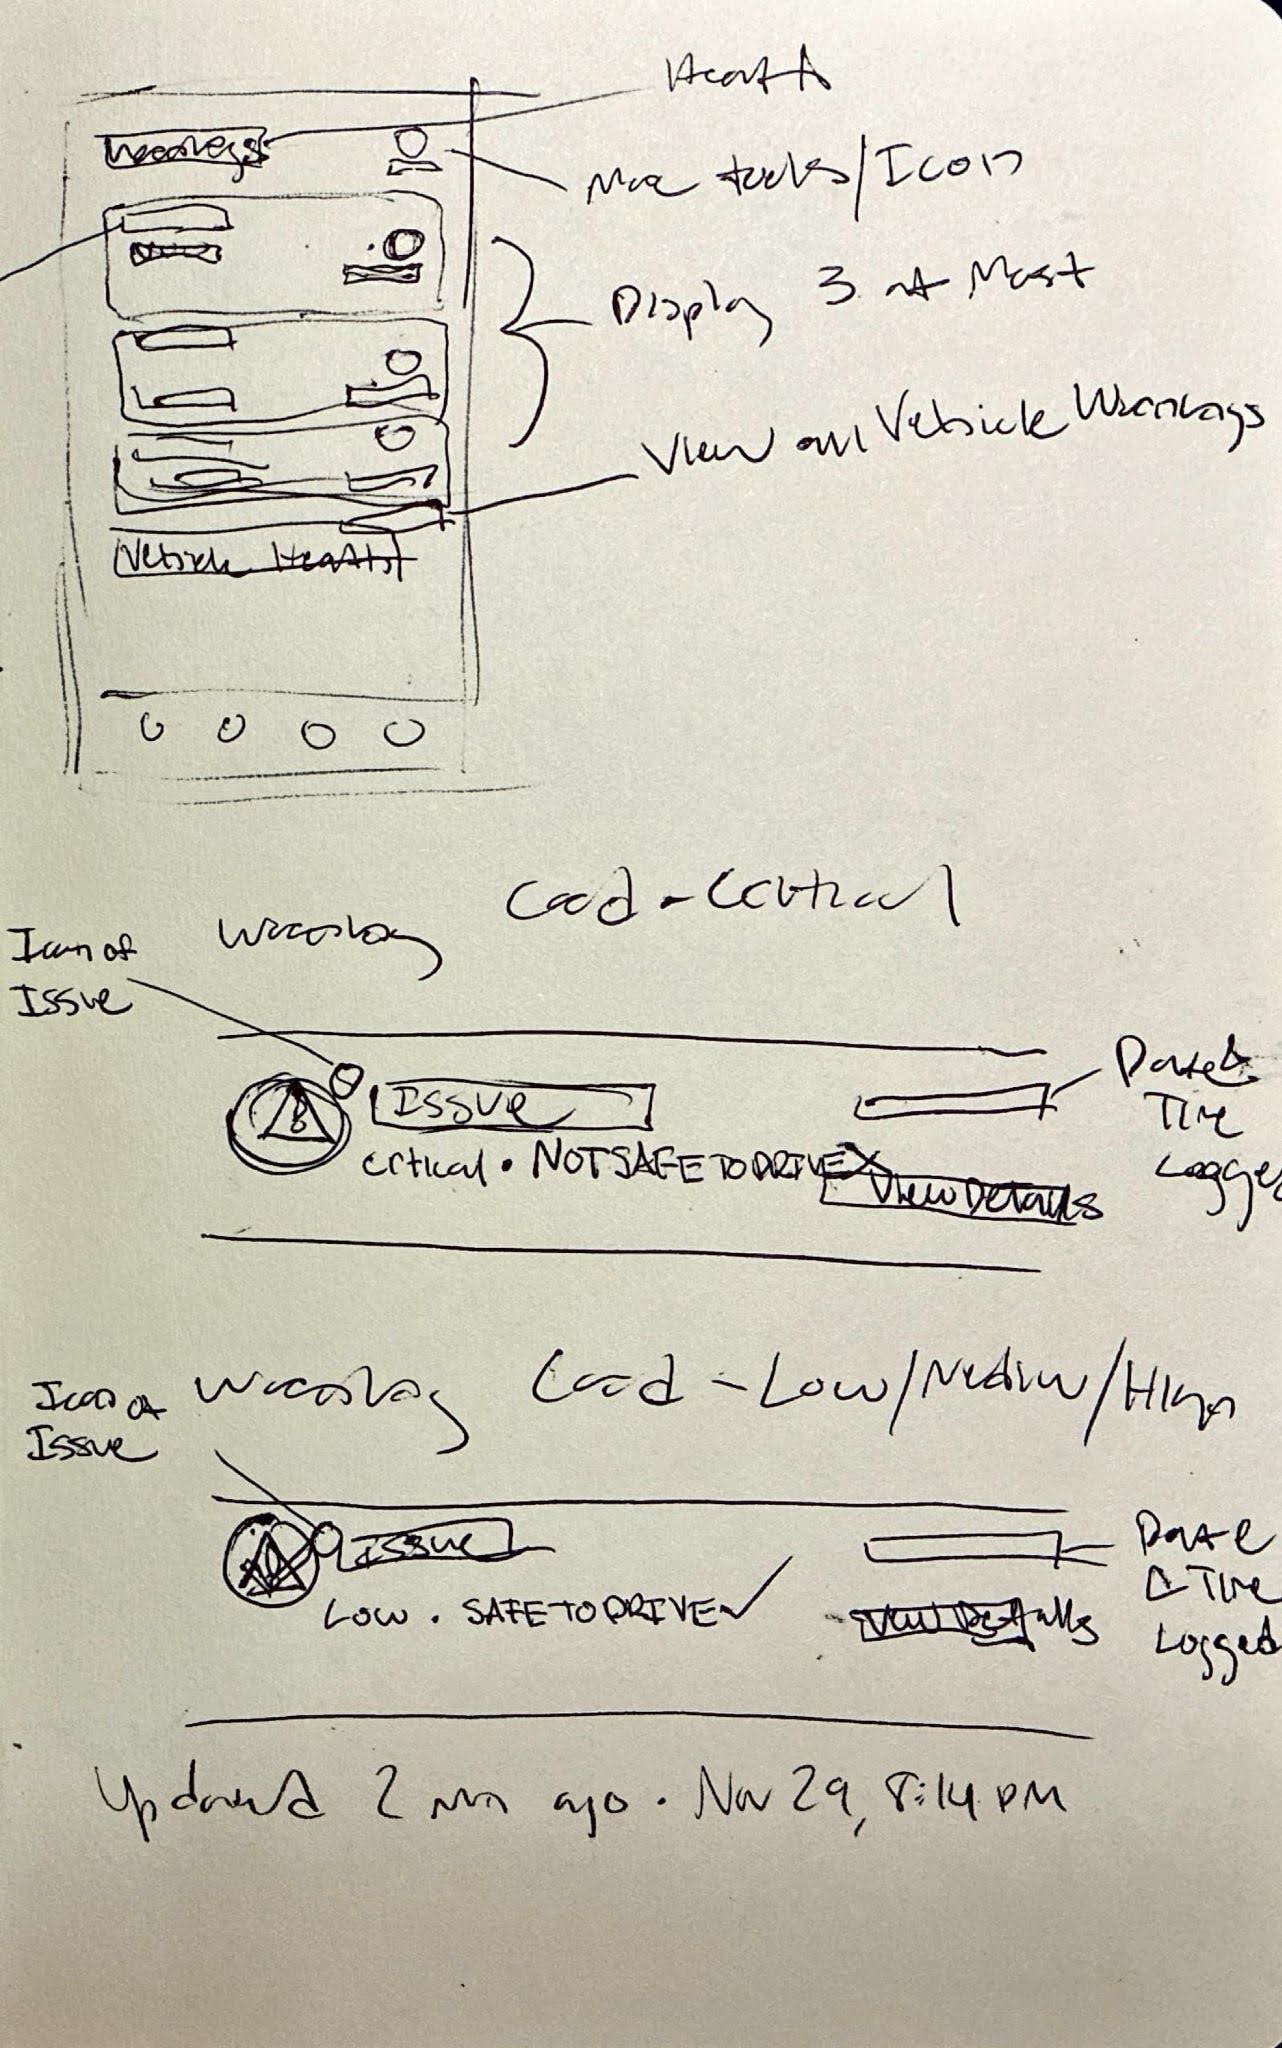 Health
Warnings
More tools/Icon
Display 3 at Most
View all Vehicle Warnings
Vehicle Health
Warning Card - Critical
Icon of
Issue
Issue
Critical • NOT SAFE TO DRIVE X
View Details
Date &
Time
Logged
Warning Card - Low/Medium/High
Icon of
Issue
Issue
Low • SAFE TO DRIVE ✓
View Details
Date
& Time
Logged
Updated 2 min ago • Nov 29, 8:14 PM